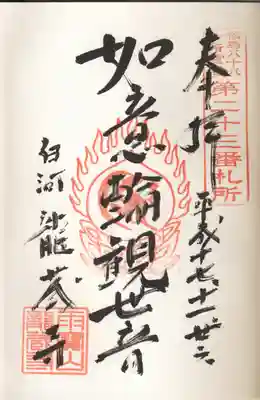 第二十三番札所
奉拝
平成十七、十一、廿六
如意輪観世音
白河 龍蔵寺